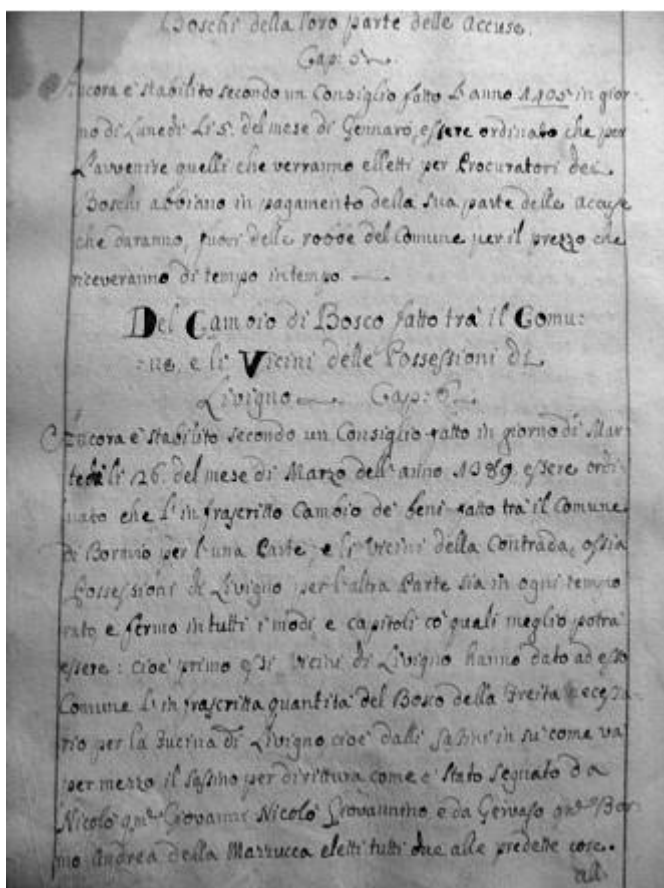 Boschi della loro parte delle Accuse.
Cap: 5
Ancora è stabilito secondo un Consiglio fatto L'anno 1405 in gior-
no di Lunedi Li 5. del mese di Gennaro, essere ordinato che per
L'avvenire quelli che verranno elletti per Procuratori dei
Boschi abbiano in pagamento della sua parte delle accuse
che daranno, fuori delle robbe del Comune per il prezzo che
riceveranno di tempo in tempo
Del Cambio di Bosco fatto trà il Comu:
:ne, e li Vicini delle Possessioni di
Livigno Cap: 6
Ancora è stabilito secondo un Consiglio fatto in giorno di Mar
tedi li 26. del mese di Marzo dell'anno 1389 essere ordi
nato che l'infrascritto Cambio de' beni fatto trà il Comune
di Bormio per l'una Parte, e li Vicini della Contrada, ossia
Possessioni di Livigno per l'altra Parte sia in ogni tempo
rato e fermo in tutti i modi, e capitoli co' quali meglio potrà
essere: cioè primo essi Vicini di Livigno hanno dato ad esso
Comune l'infrascritta quantità del Bosco della
rio per la Fucina di Livigno cioè dalli in sù come và
per mezzo il per dirittura come è stato segnato da
Nicolò qm. Giovanni Nicolò Giovannino e da Gervaso qm. Bor
mo Andrea della Marzucca eletti tutti due alle predette cose.
all.